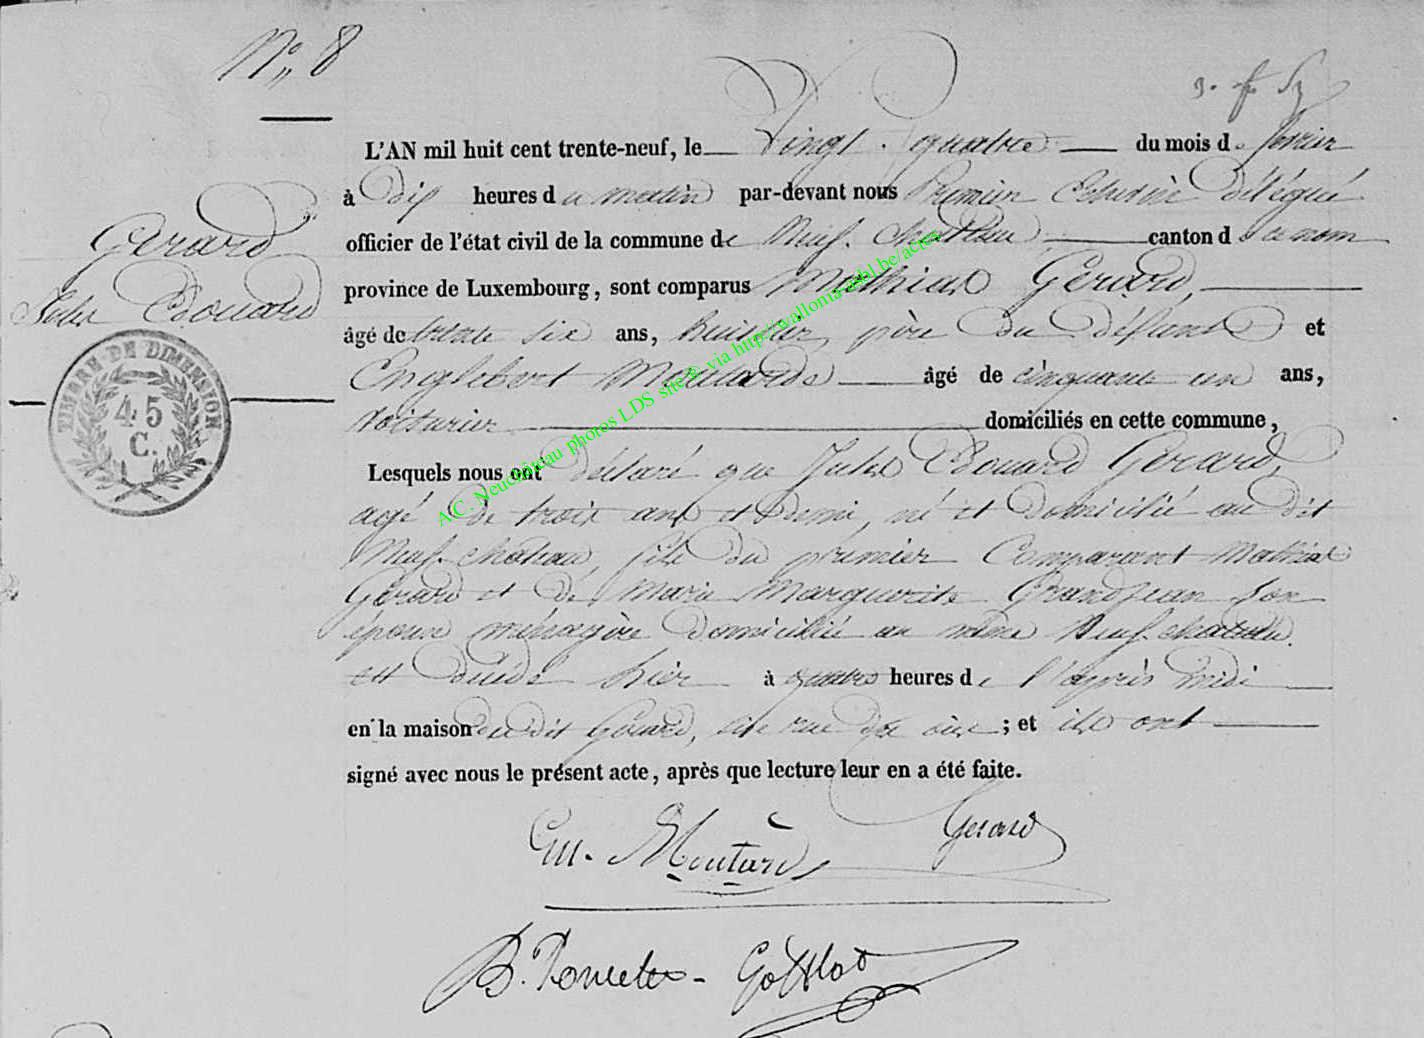 N° 8
3. f.
L'AN mil huit cent trente-neuf, le Vingt quatre du mois de février
à Dix heures du matin par-devant nous Premier Echevin délégué
officier de l'état civil de la commune de Neuf-Chateau canton du même nom
province de Luxembourg, sont comparus Mathieu Gérard,
âgé de trente six ans, huissier, père du défunt et
Englebert Moutarde âgé de cinquante un ans,
voiturier domiciliés en cette commune,
Lesquels nous ont déclaré que Jules Edouard Gérard,
agé de trois ans et demi, né et domicilié au dit
Neufchateau, fils du premier Comparant Mathieu
Gérard et de Marie Marguerite Grandjean son
épouse ménagère domiciliée au même Neufchateau
est décédé hier à quatre heures de l'après midi
en la maison du dit Gérard, ; et ils ont
signé avec nous le présent acte, après que lecture leur en a été faite.
Gérard
Jules Edouard
TIMBRE DE DIMENSION
45
C.
A.C. Neufchâteau photos LDS site & via http://wallonia-asbl.be/actes
Moutarde
Gerard
B. Poncelet - Gofflot